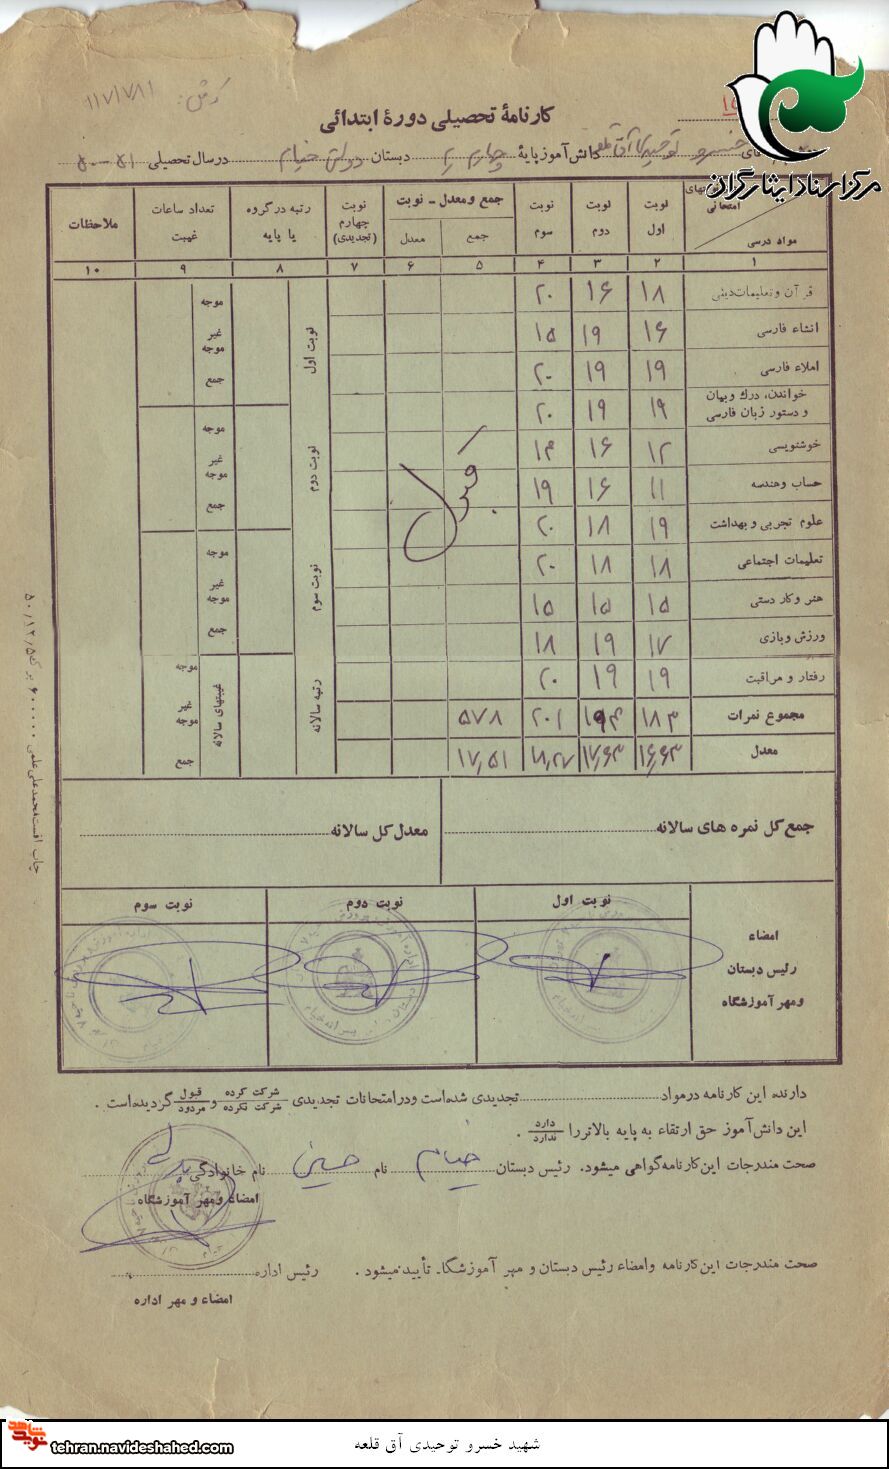 مرکز اسناد ایثارگران
کارنامهٔ تحصیلی دورهٔ ابتدائی
خسرو توحیدی آق قلعه دانش‌آموز پایهٔ چهارم دبستان دولتی خیام در سال تحصیلی ۵۱-۵۰
امتحانی مواد درسی | نوبت اول | نوبت دوم | نوبت سوم | جمع و معدل ـ نوبت | جمع | معدل | نوبت چهارم (تجدیدی) | رتبه در گروه یا پایه | تعداد ساعات غیبت | ملاحظات
۱ ۲ ۳ ۴ ۵ ۶ ۷ ۸ ۹ ۱۰
قرآن و تعلیمات دینی ۱۸ ۱۶ ۲۰
انشاء فارسی ۱۶ ۱۹ ۱۵
املاء فارسی ۱۹ ۱۹ ۲۰
خواندن، درك و بیان و دستور زبان فارسی ۱۹ ۱۹ ۲۰
خوشنویسی ۱۲ ۱۶ ۱۴
حساب و هندسه ۱۱ ۱۶ ۱۹
علوم تجربی و بهداشت ۱۹ ۱۸ ۲۰
تعلیمات اجتماعی ۱۸ ۱۸ ۲۰
هنر و کار دستی ۱۵ ۱۵ ۱۵
ورزش و بازی ۱۷ ۱۹ ۱۸
رفتار و مراقبت ۱۹ ۱۹ ۲۰
مجموع نمرات ۱۸۳ ۱۹۴ ۲۰۱ ۵۷۸
معدل ۱۶٫۶۳ ۱۷٫۶۳ ۱۸٫۲۷ ۱۷٫۵۱
قبول
نوبت اول
موجه
غیر موجه
جمع
نوبت دوم
موجه
غیر موجه
جمع
نوبت سوم
موجه
غیر موجه
جمع
رتبه سالانه
غیبتهای سالانه
موجه
غیر موجه
جمع
جمع کل نمره های سالانه
معدل کل سالانه
نوبت اول
نوبت دوم
نوبت سوم
امضاء
رئیس دبستان
و مهر آموزشگاه
دارنده این کارنامه در مواد تجدیدی شده‌است و در امتحانات تجدیدی شرکت کرده شرکت نکرده و قبول مردود گردیده‌است .
این دانش‌آموز حق ارتقاء به پایه بالاتر را دارد ندارد .
صحت مندرجات این کارنامه گواهی میشود. رئیس دبستان خیام نام حسین نام خانوادگی
امضاء و مهر آموزشگاه
صحت مندرجات این کارنامه و امضاء رئیس دبستان و مهر آموزشگاه تأیید میشود . رئیس اداره
امضاء و مهر اداره
چاپ افست محمدعلی علمی ۶۰۰۰۰۰ برگ ۵۰/۱۲/۵
شهید خسرو توحیدی آق قلعه
نوید شاهد
tehran.navideshahed.com